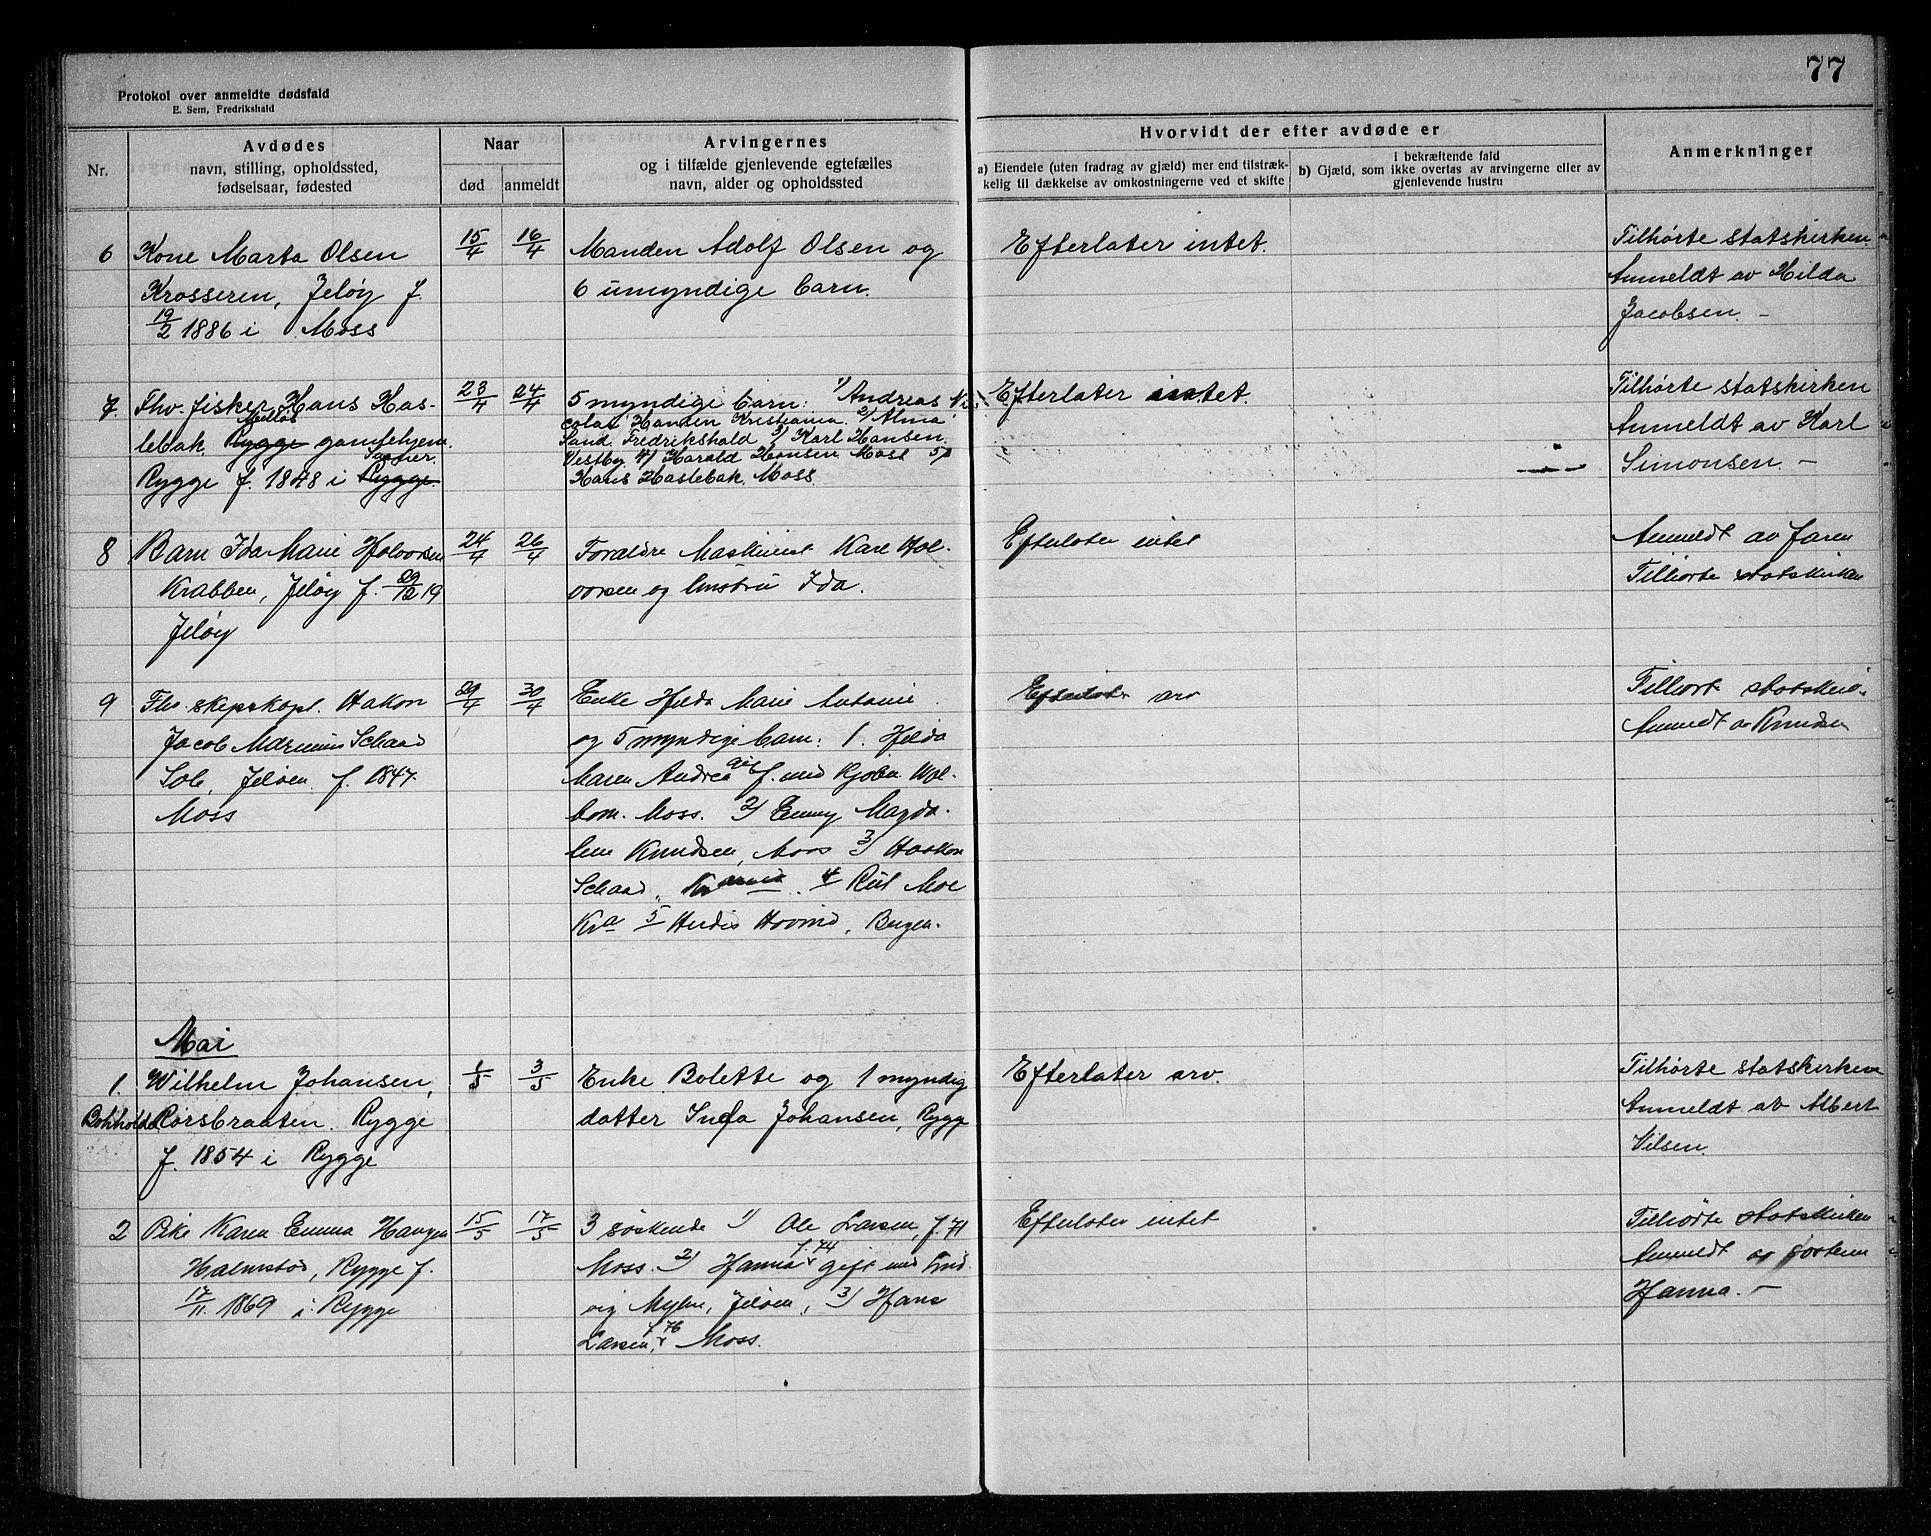 77
Protokol over anmeldte dødsfald
E. Sem, Fredrikshald
Nr.
Avdødes
navn, stilling, opholdssted,
fødselsaar, fødested
Naar
død
anmeldt
Arvingernes
og i tilfælde gjenlevende egtefælles
navn, alder og opholdssted
Hvorvidt der efter avdøde er
a) Eiendele (uten fradrag av gjæld) mer end tilstræk-
kelig til dækkelse av omkostningerne ved et skifte
i bekræftende fald
b) Gjæld, som ikke overtas av arvingerne eller av
gjenlevende hustru
Anmerkninger
6
Kone Marta Olsen
Krosseren, Jeløy f.
19/2 1886 i Moss
15/4
16/4
Manden Adolf Olsen og
6 umyndige barn.
Efterlater intet.
Tilhørte statskirken
Anmeldt av Hilda
Jacobsen. –
7.
Fhv. fisker Hans Has-
lebak Rygge gamlehjem
Rygge f. 1848 i Rygge
23/4
24/4
5 myndige barn: 1) Andreas Ni-
colai Hansen Kristiania 2) Alma
Sand Fredrikshald 3) Karl Hansen
Vestby 4) Harald Hansen Moss 5)
Hans Haslebak, Moss.
Efterlater intet.
Tilhørte statskirken
Anmeldt av Karl
Simonsen. –
8
Barn Ida Marie Halvorsen
Krabben, Jeløy f. 29/12 19
Jeløy
24/4
26/4
Forældre Maskinist Karl Hal-
vorsen og hustru Ida.
Efterlater intet
Anmeldt av faren
Tilhørte statskirken
9
Fhv. skipskapt. Hakon
Jacob Marinius Schaad
Sole, Jeløen f. 1847.
Moss
29/4
30/4
Enke Hilda Marie Antonie
og 5 myndige barn: 1. Hilda
Maren Andrea gif. med Kjøbm. Wol-
bom. Moss. 2) Emmy Magda-
lene Knudsen, Moss 3) Haakon
Schaad, 4 Rut Moe
Kra 5 Herdis Hovind, Bergen.
Efterlater arv
Tilhørt statskir.
Anmeldt av Knudsen
Mai
1.
Wilhelm Johansen,
Rørsbraaten. Rygge
f. 1854 i Rygge
1/5
3/5
Enke Bolette og 1 myndig
datter Inga Johansen, Rygge
Efterlater arv.
Tilhørte statskirken
Anmeldt av Albert
Nilsen.
2
Pike Karen Emma Haugen
Halmstad, Rygge f.
17/11 1869 i Rygge
15/5
17/5
3 søskende 1) Ole Larsen, f. 71
Moss. 2) Hanna f. 74 gift med Lud-
vig Myhre, Jeløen, 3) Hans
Larsen, f. 76 Moss.
Efterlater intet
Tilhørte statskirken
Anmeldt av søsteren
Hanna. –